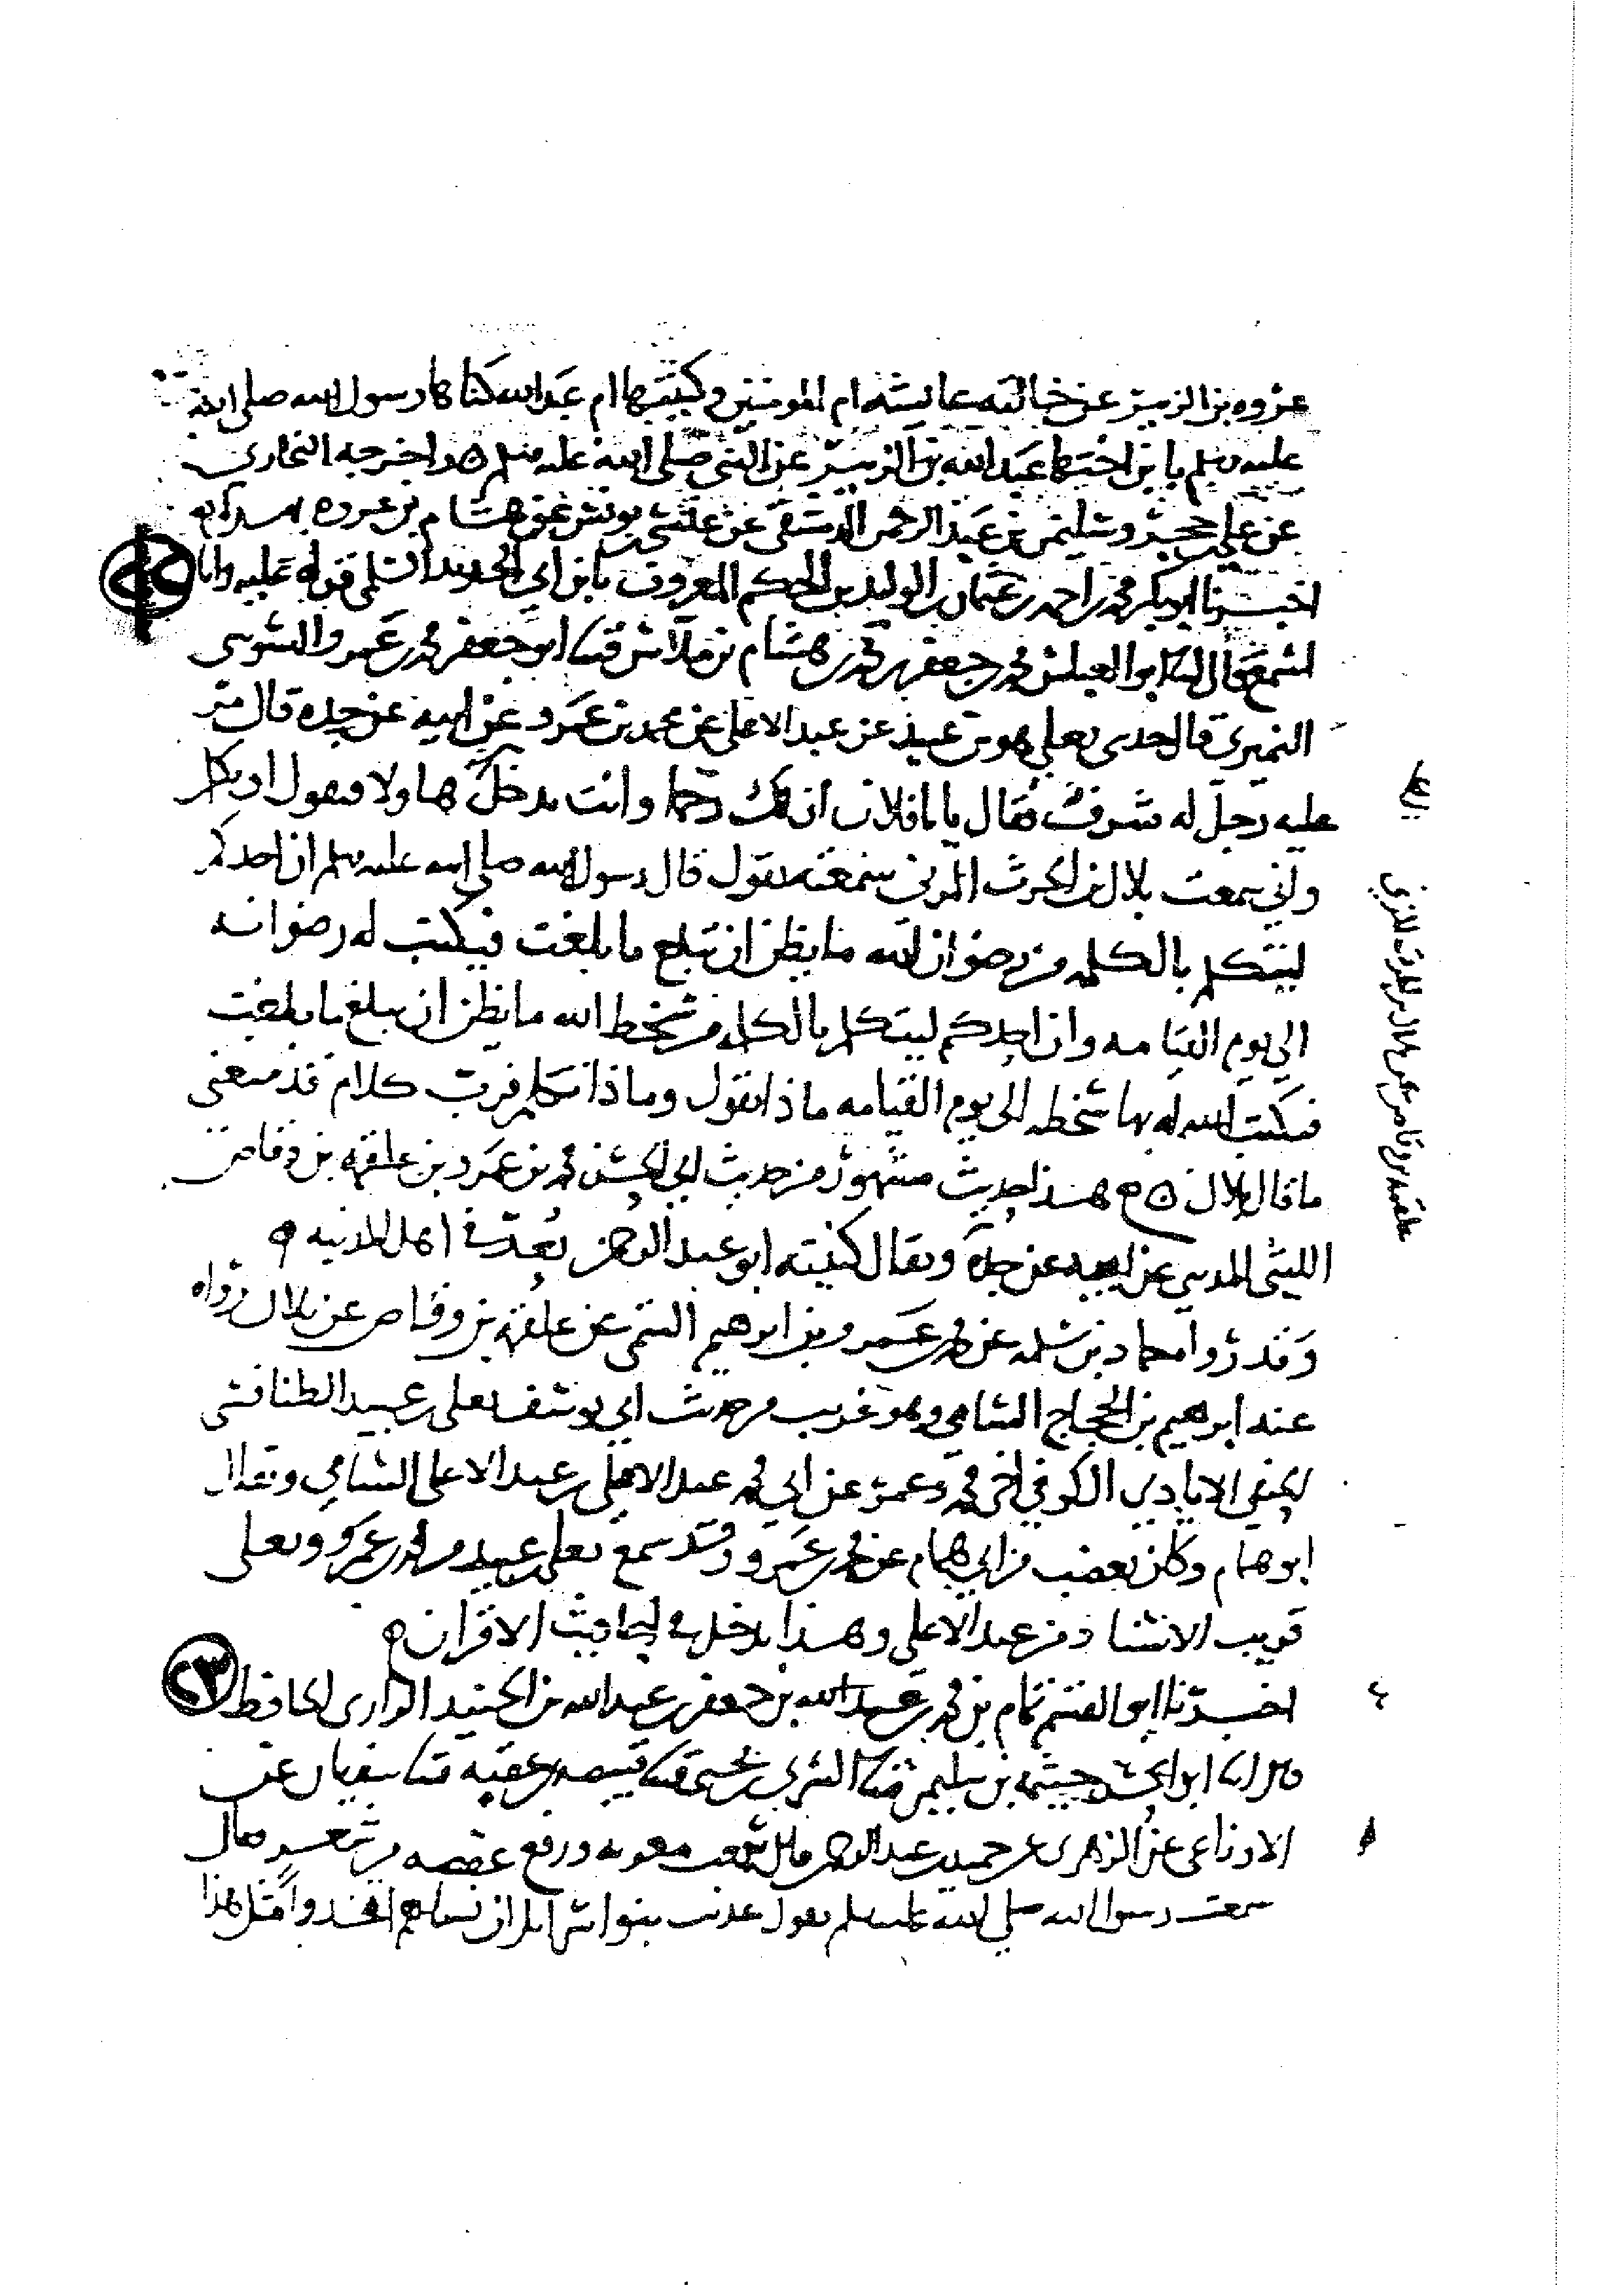 عروه بن الزبير عن خالته عايشه ام المومنين وكنيتها ام عبد الله كناها رسول الله صلى الله
عليه وسلم بابن اختها عبد الله بن الزبير عن النبي صلى الله عليه وسلم ه واخرجه البخاري
عن علي بن حجر وسليمن بن عبد الرحمن الدمشقي عن عيسى بن يونس عن هشام بن عروه
اخبرنا ابو بكر محمد بن احمد بن عثمان بن الوليد بن الحكم المعروف بابن ابي الحديد السلمي قراه عليه وانا
اسمع قال انا ابو العباس محمد بن جعفر بن محمد بن هشام بن ملاس ثنا ابو جعفر محمد بن عمرو السوسي
النميري قال حدثني يعلي هو بن عبيد عن عبد الاعلى عن محمد بن عمرو عن ابيه عن جده قال مر
عليه رجل له شرف فقال يا با فلان ان لك رحما وانت تدخل
واني سمعت بلال بن الحرث المزني سمعته يقول قال رسول الله صلى الله عليه وسلم ان احدكم
ليتكلم بالكلمه من رضوان الله ما يظن ان تبلغ ما بلغت فيكتب له رضوانه
الى يوم القيامه وان احدكم ليتكلم بالكلمه من سخط الله ما يظن ان تبلغ ما بلغت
فيكتب الله له بها سخطه الى يوم القيامه ماذا تقول وماذا تكلم فرب كلام قد منعني
ما قال بلال ه هذا حديث مشهور من حديث ابي الحسن محمد بن عمرو بن علقمه بن وقاص
الليثي المديني عن ابيه عن جده ويقال كنيته ابو عبد الرحمن يعد في اهل المدينه ه
وقد رواه حماد بن سلمه عن محمد بن عمرو بن ابرهيم التيمي عن علقمه بن وقاص عن بلال رواه
عنه ابرهيم بن الحجاج الشامي وهو غريب من حديث ابي يوسف يعلى بن عبيد الطنافسي
الحنفي الايادي الكوفي اخي محمد وعمر عن ابي محمد عبد الاعلى بن عبد الاعلى الشامي ويقال
ابو همام وكان يغضب من ابي همام عن محمد بن عمرو وقد سمع يعلى بن عبيد من محمد بن عمرو ويعلى
قريب الاسناد من عبد الاعلى وهذا يدخل في احاديث الاقران ه
٢٣
اخبرنا ابو القسم تمام بن محمد بن عبد الله بن جعفر بن عبد الله بن الجنيد الرازي الحافظ
قال انا ابو الحسن خيثمه بن سليمن ثنا السري بن يحيى ثنا قبيصه بن عقبه ثنا سفيان عن
الاوزاعي عن الزهري عن حميد بن عبد الرحمن قال سمعت معويه ورفع عقصه من شعر فقال
سمعت رسول الله صلى الله عليه وسلم يقول عذب بنو اسرايل ان نساهم اتخذوا مثل هذا
علقمه بن وقاص عن بلال بن الحرث المزني